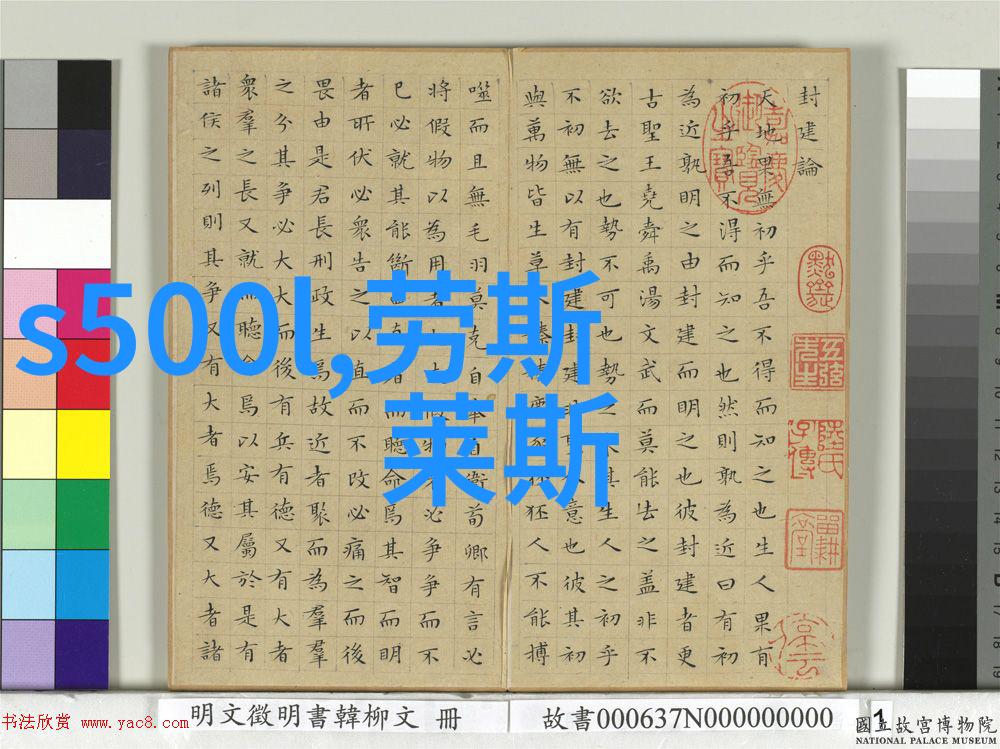 封建論
天地果無初乎吾不得而知之也生人果有
初乎吾不得而知之也然則孰為近曰有初
為近孰明之由封建而明之也彼封建者更
古聖王堯舜禹湯文武而莫能去之蓋非不
欲去之也勢不可也勢之人之初乎
不初無以有封建封建意也彼其初
與萬物皆生草狉人不能搏
噬而且無毛羽莫克自奉自衛荀卿有言必
將假物以為用者必爭爭而不
已必就其能斷而聽命焉其智而明
者所伏必衆告之以直而不改必痛之而後
畏由是君長刑政生焉故近者聚而為羣
之分其爭必大大而後有兵有德又有大者
衆羣之長又就而聽命焉以安其屬於是有
諸侯之列則其爭又有大者焉德又大者諸
s500l,劳斯
莱斯
嘉慶御覽之寶
五弦
先生
陸氏
子傳
明文徵明書韓柳文 冊
故書000637N000000000
1
國立故宮博物院
NATIONAL PALACE MUSEUM
书法欣赏 www.yac8.com